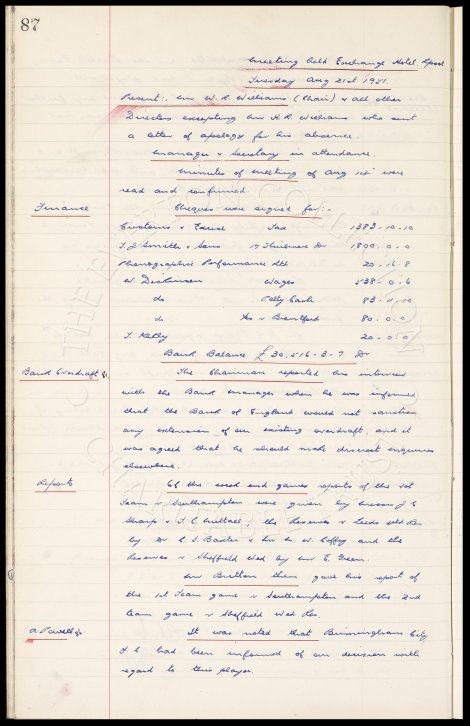 87
Meeting held Exchange Hotel, L'pool
Tuesday Aug 21st 1951.
Present:- Mr W. R. Williams (Chair) & all other
Directors excepting Mr H. R. Williams who sent
a letter of apology for his absence.
Manager & Secretary in attendance.
Minutes of meeting of Aug 14th were
read and confirmed.
Finance Cheques were signed for:-
Customs & Excise Tax 1383-10-10
T. J. Smith & Sons 1800-0-0
Phonographic Performance Ltd 20-16-8
W. Dickinson Wages 538-0-6
do Petty Cash 83-11-10
do v Brentford 80-0-0
T. Kelly 20-0-0
Bank Balance £30,516-3-7 Dr
Bank Overdraft The Chairman reported his interview
with the Bank Manager when he was informed
that the Bank of England would not sanction
any extension of our existing overdraft, and it
was agreed that he should make discreet enquiries
elsewhere.
Reports Of the week end games reports of the 1st
Team v Southampton were given by Messrs J. C.
Sharp & T. C. Nuttall, the Reserves v Leeds Utd Res
by Dr C. S. Baxter & Mr W. and the
Reserves v Sheffield Wed by Mr E. Green.
Mr Britton then gave his report of
the 1st Team game v Southampton and the 2nd
team game v Sheffield Wed Res.
Powell It was noted that Birmingham City
F. C. had been informed of our decision with
regard to this player.